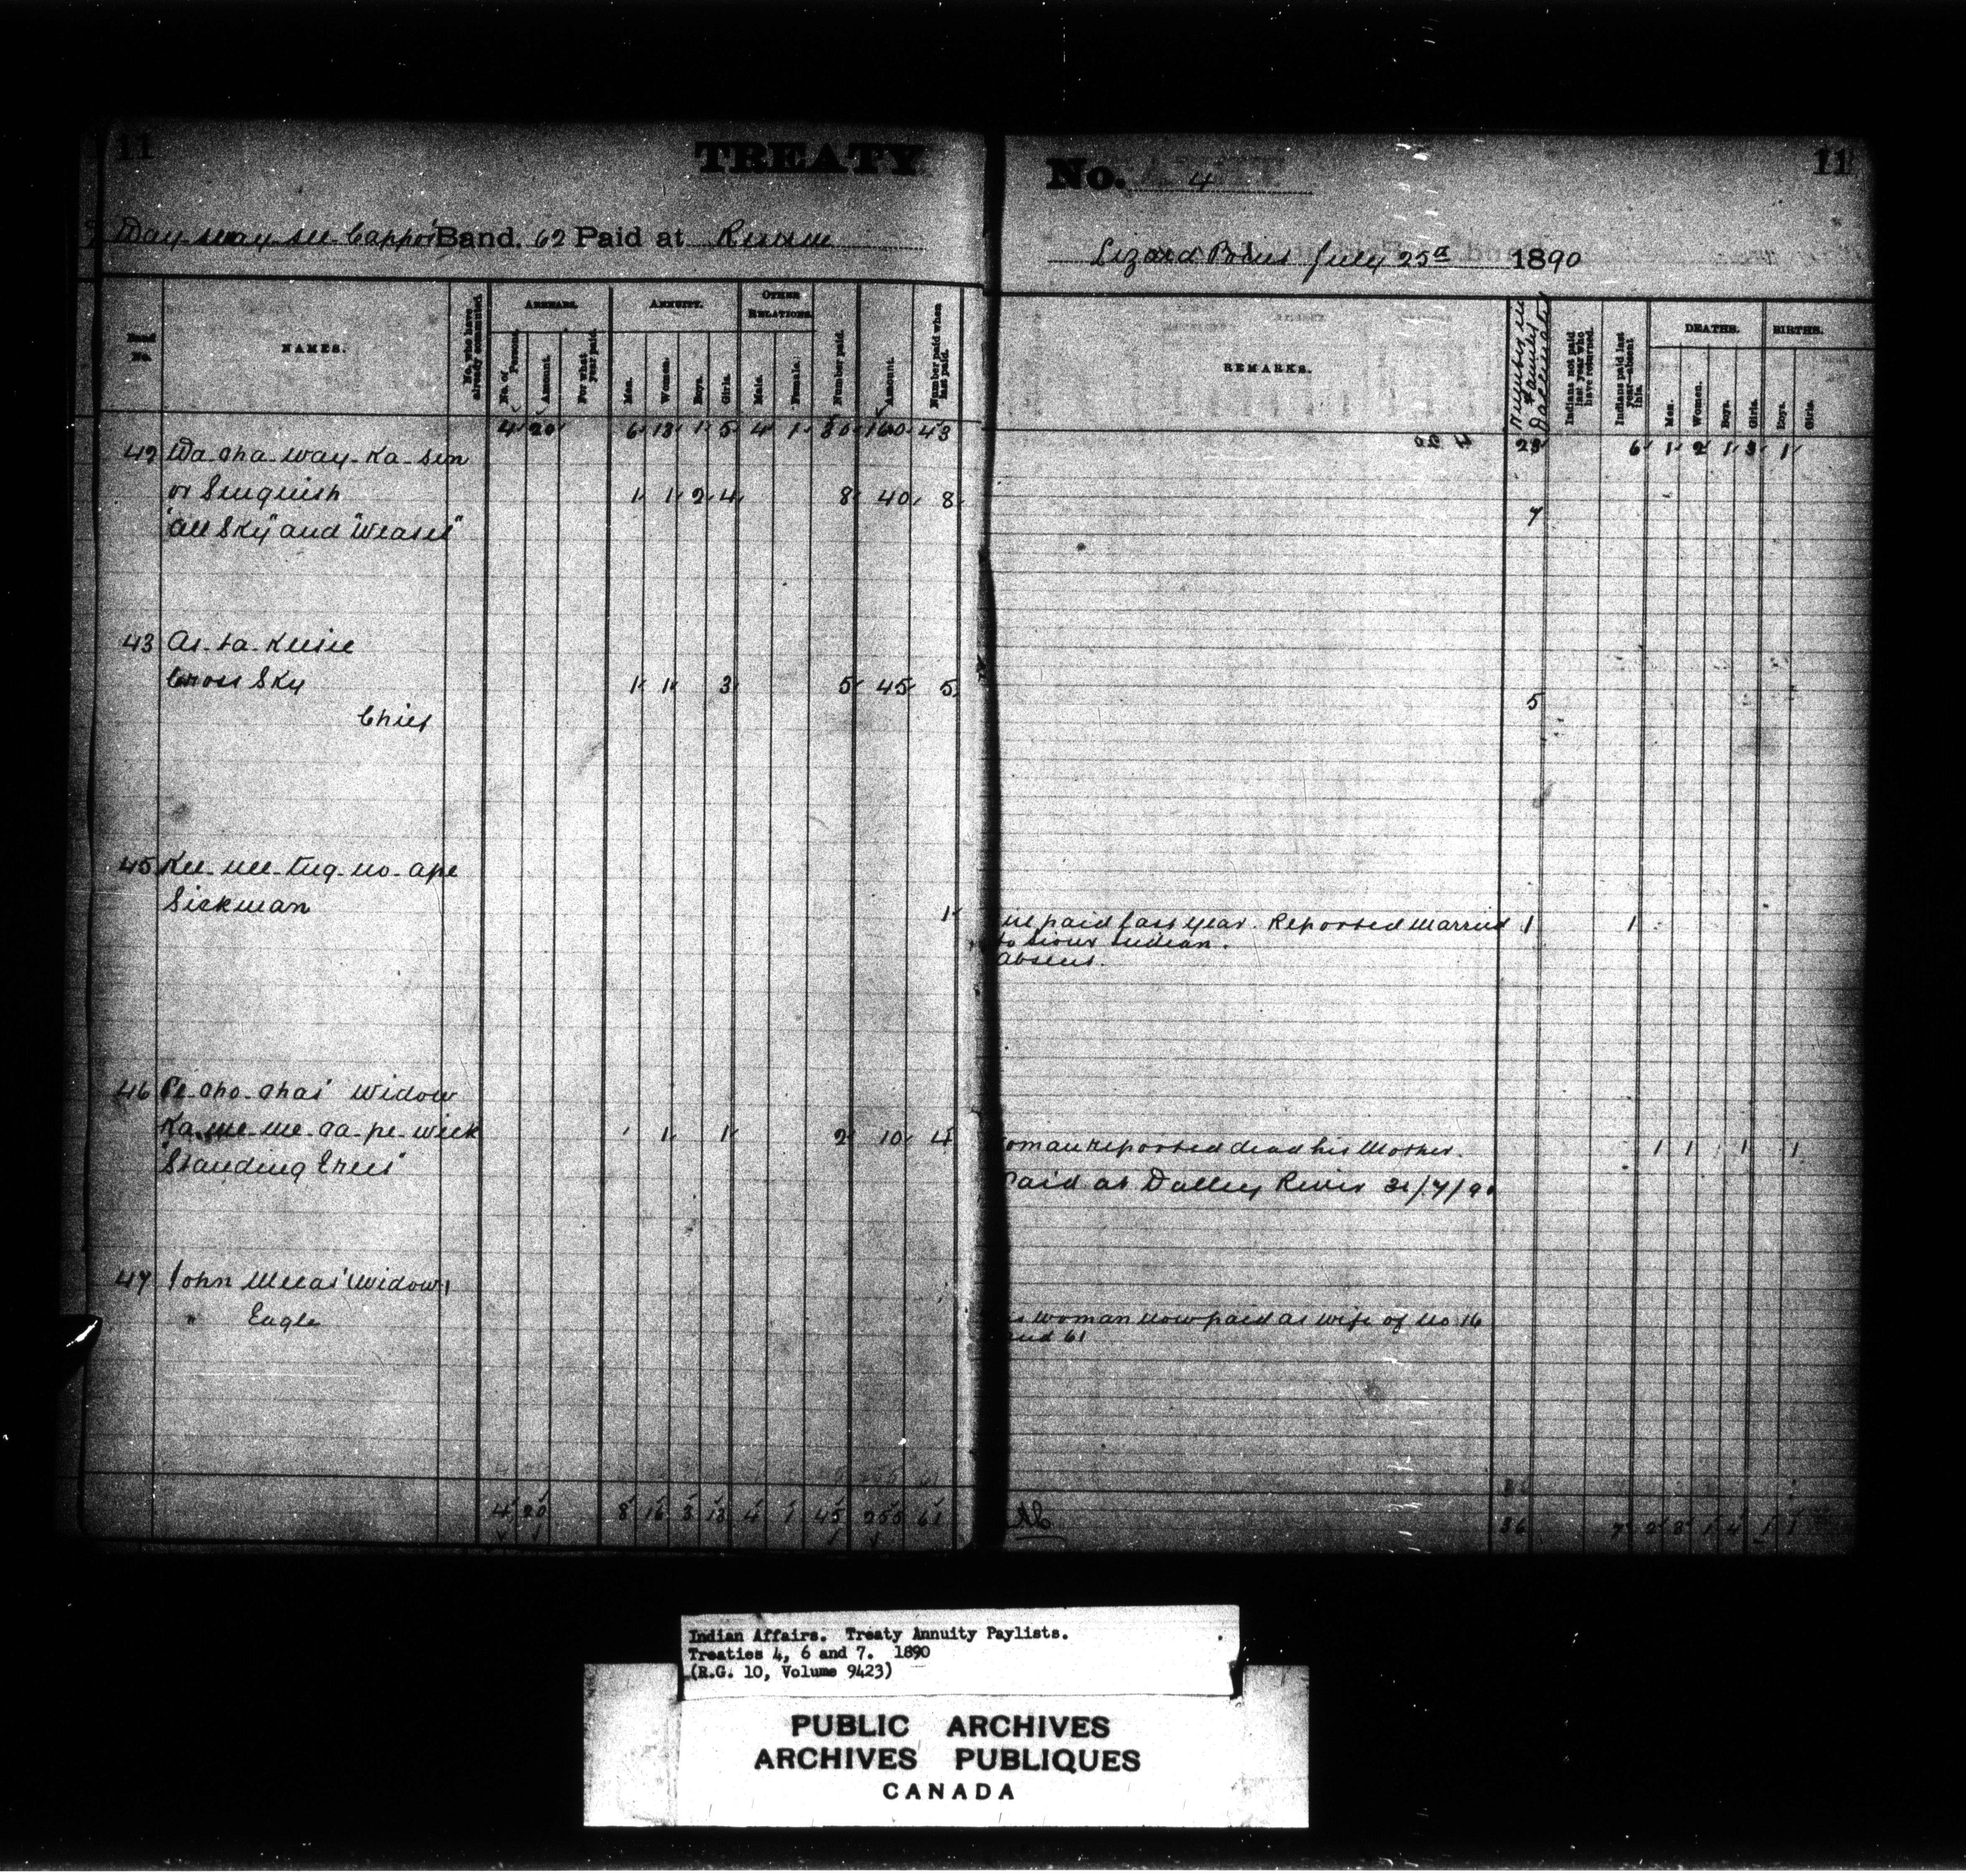 11 TREATY No. 4 11
Way-way-see-Cappo's Band. 62 Paid at Reserve
Lizard Point July 25th 1890
Band No.
NAMES.
No. who have already commuted
ARREARS.
No. of Persons.
Amount.
For what year paid.
ANNUITY.
Men.
Women.
Boys.
Girls.
OTHER RELATIONS.
Male.
Female.
Number paid.
Amount.
Number paid when last paid.
REMARKS.
Number in family
Indians not paid last year who have returned.
Indians paid last year—absent this.
DEATHS.
Men.
Women.
Boys.
Girls.
BIRTHS.
Boys.
Girls.
4 20 6 13 1 5 4 1 30 160 43 6 1 2 1 3 1
42 Wa-cha-way-ka-sin
or Senquish 1 1 2 4 8 40 8
"All Sky" and "Weasel" 7
43 As-ta-keesic
Cross Sky 1 1 3 5 45 5 5
Chief
45 Kee-nee-tug-no-ape
Sickman 1 paid last year. Reported married 1 1
to Sioux Indian.
Absent.
46 Pe-cho-chas' Widow
1 1 2 10 4 Woman reported dead his Mother. 1 1 1 1
"Standing Trees" Paid at Valley River 31/7/90
47 John Widow
" Eagle woman now paid as wife of No 16
and 61
4 20 8 16 3 13 4 1 45 255 61 36 7 2 3 1 4 1 1
Indian Affairs. Treaty Annuity Paylists.
Treaties 4, 6 and 7. 1890
(R.G. 10, Volume 9423)
PUBLIC ARCHIVES
ARCHIVES PUBLIQUES
CANADA